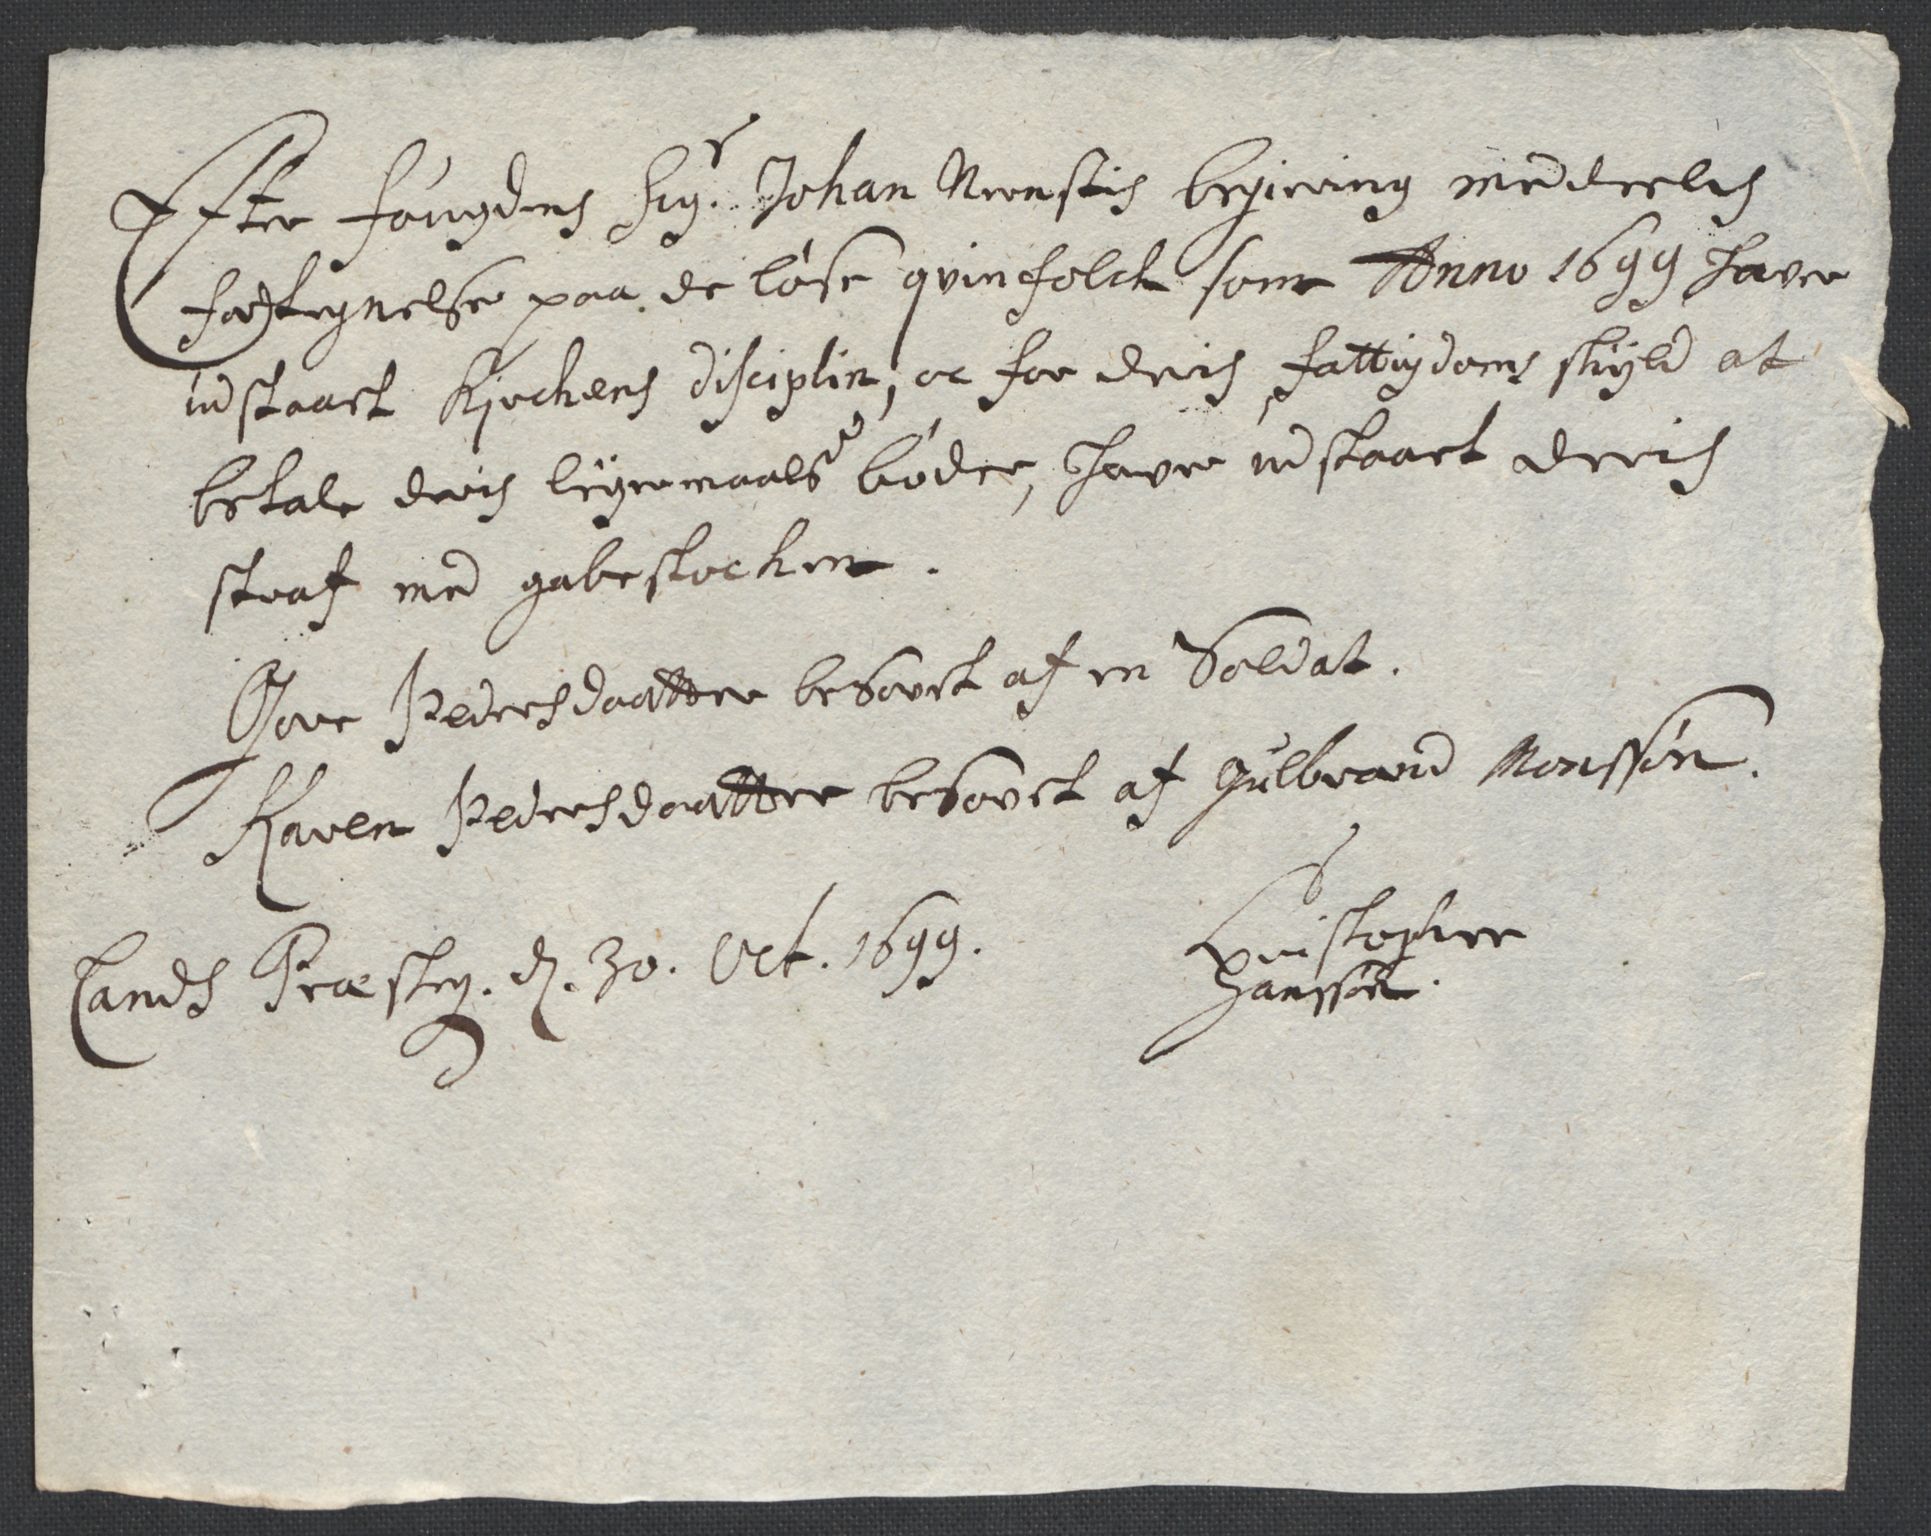 Efter fougdens Sigr. Johan Nrenstis begiering meddeelis
fortegnelse paa de løse qvinfolck som Anno 1699 have
udstaaet Kirchens disciplin, oc for deris fattigdoms skyld at
betale deris leyermaals bøder, have udstaaet deris
straf med gabestochen.
Gove Pedersdaatter besovet af en Soldat.
Karen Pedersdaatter besovet af Gulbrand Monssøn.
Lands Præsteg. d. 30. Oct. 1699.
Christopher
Hanssøn.